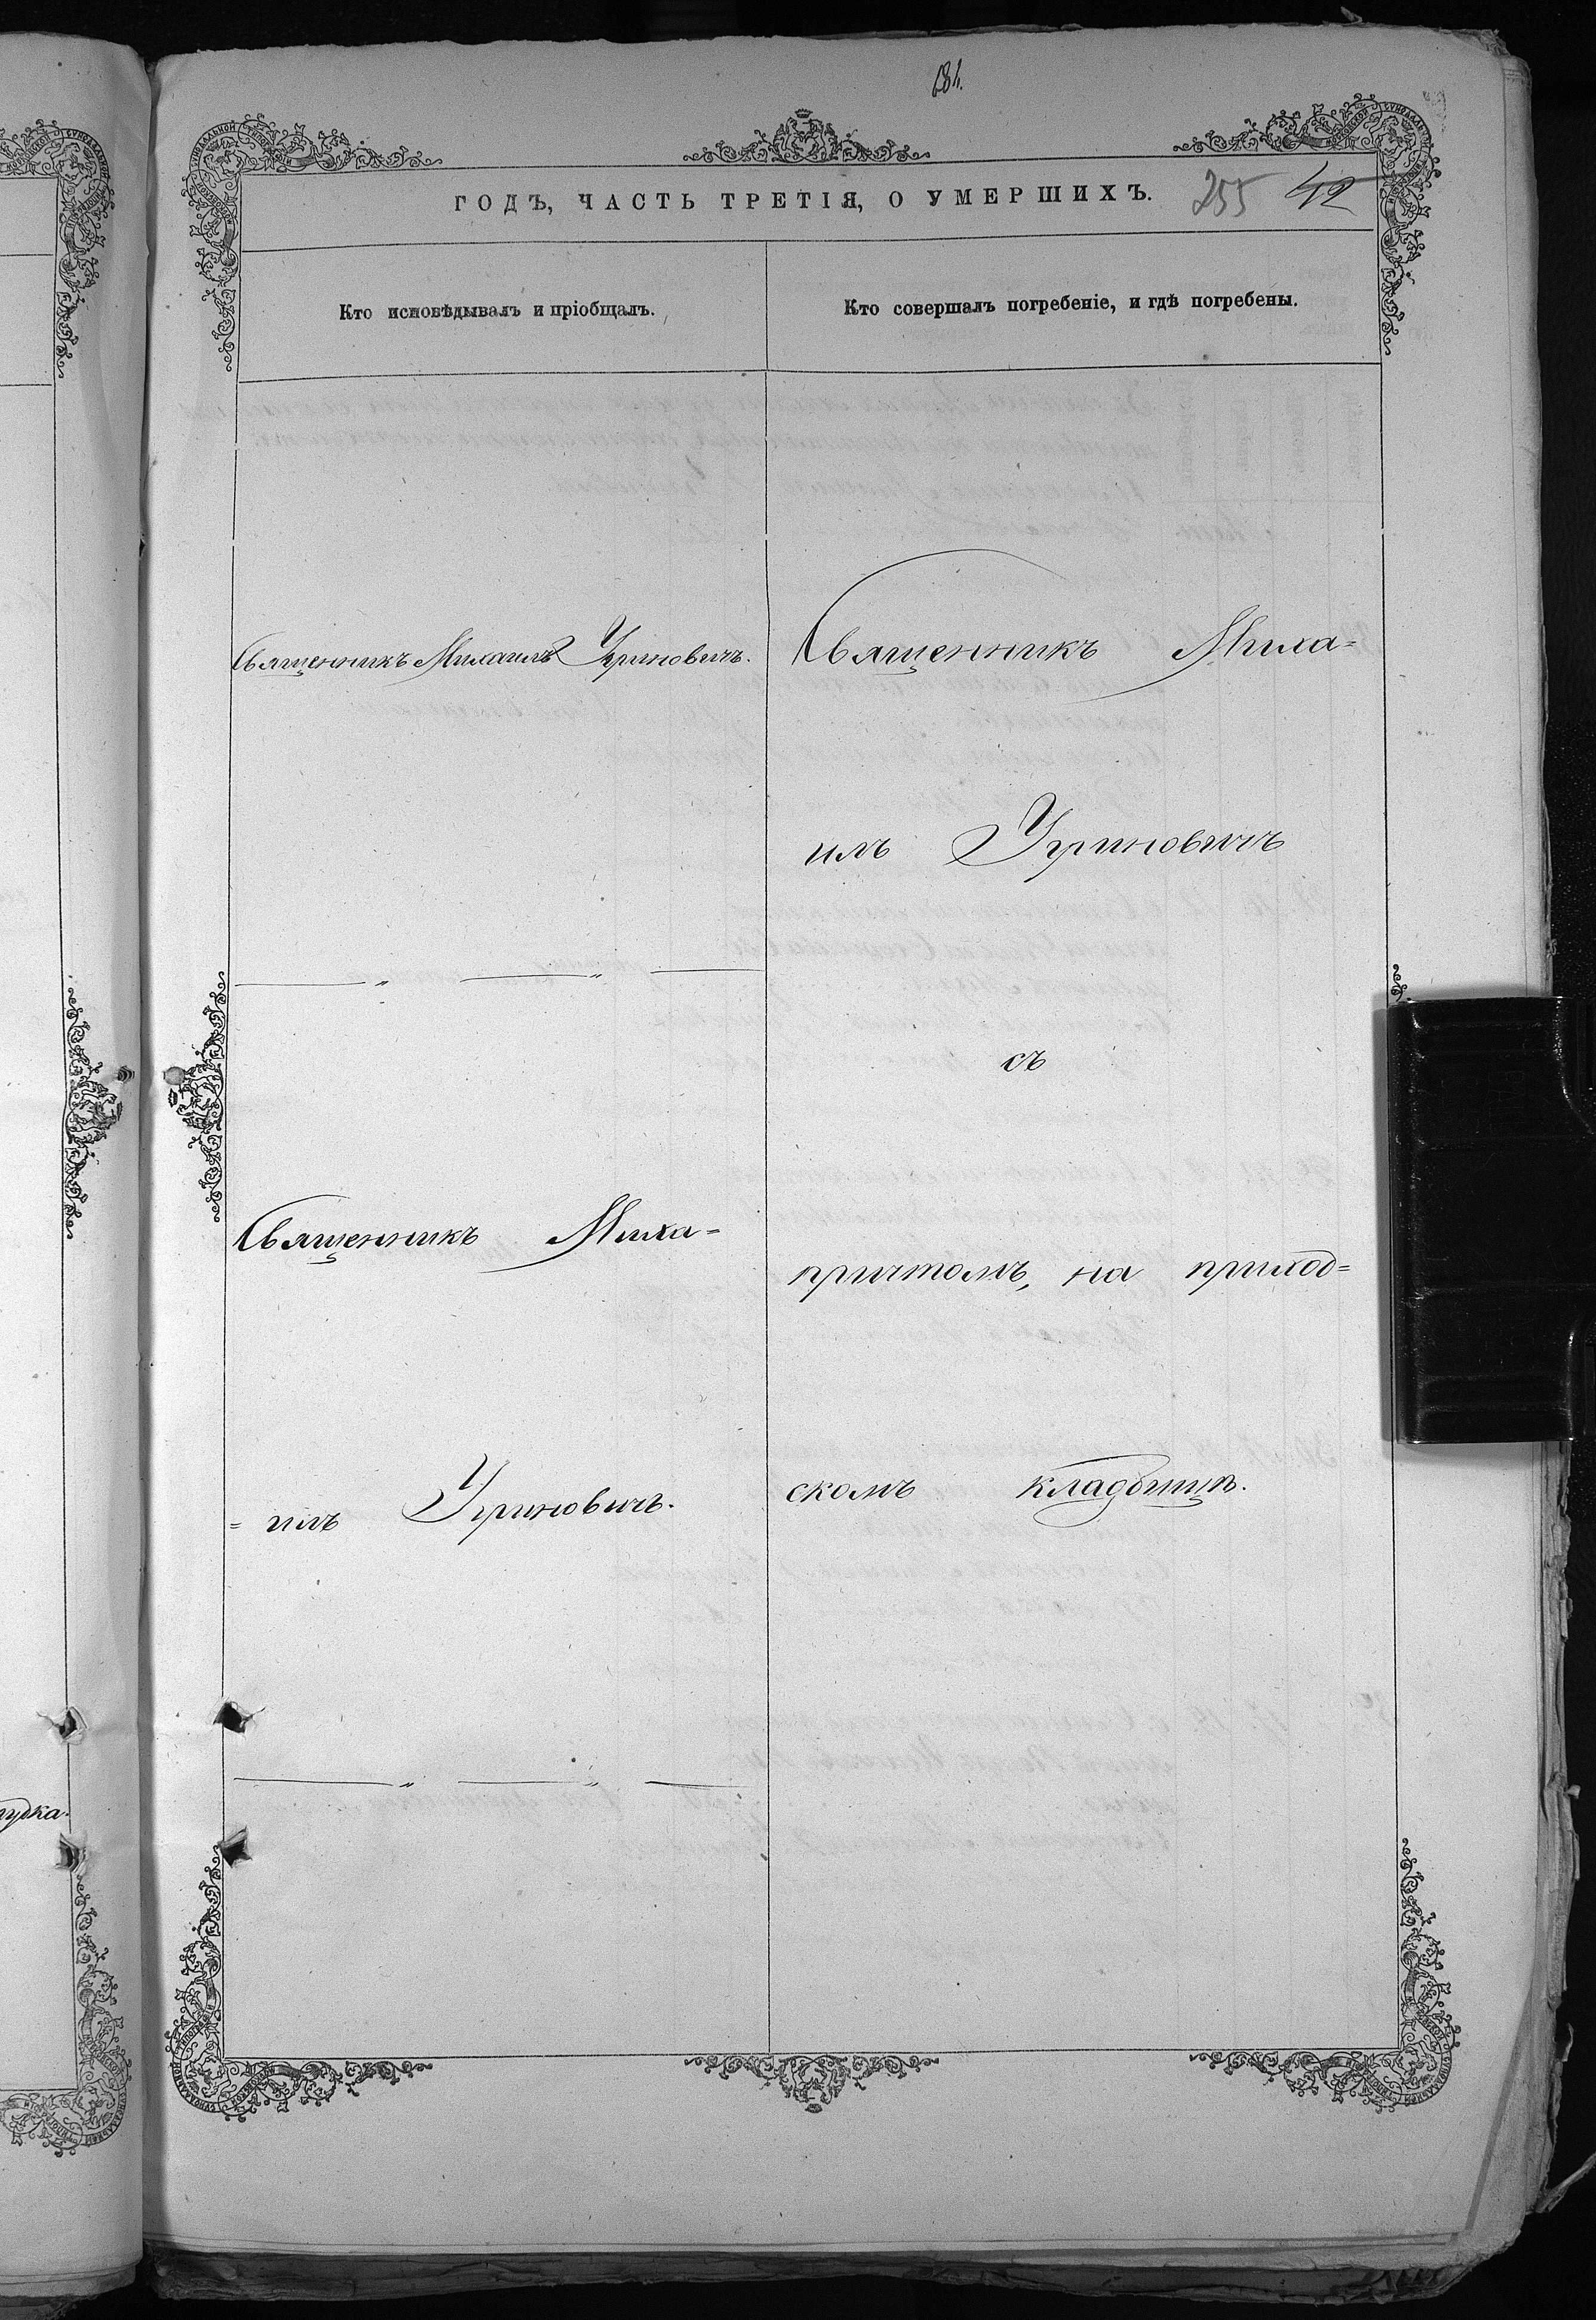 ГОДЪ, ЧАСТЬ ТРЕТІЯ, О УМЕРШИХЪ. 255 42
Кто исповѣдывалъ и пріобщалъ.
Священникъ Михаилъ Угриновичъ.
Священникъ Миха=
=илъ Угриновичъ.
Кто совершалъ погребеніе, и гдѣ погребены.
Священникъ Миха=
илъ Угриновичъ
съ
причтомъ, на приход=
скомъ кладбищѣ.